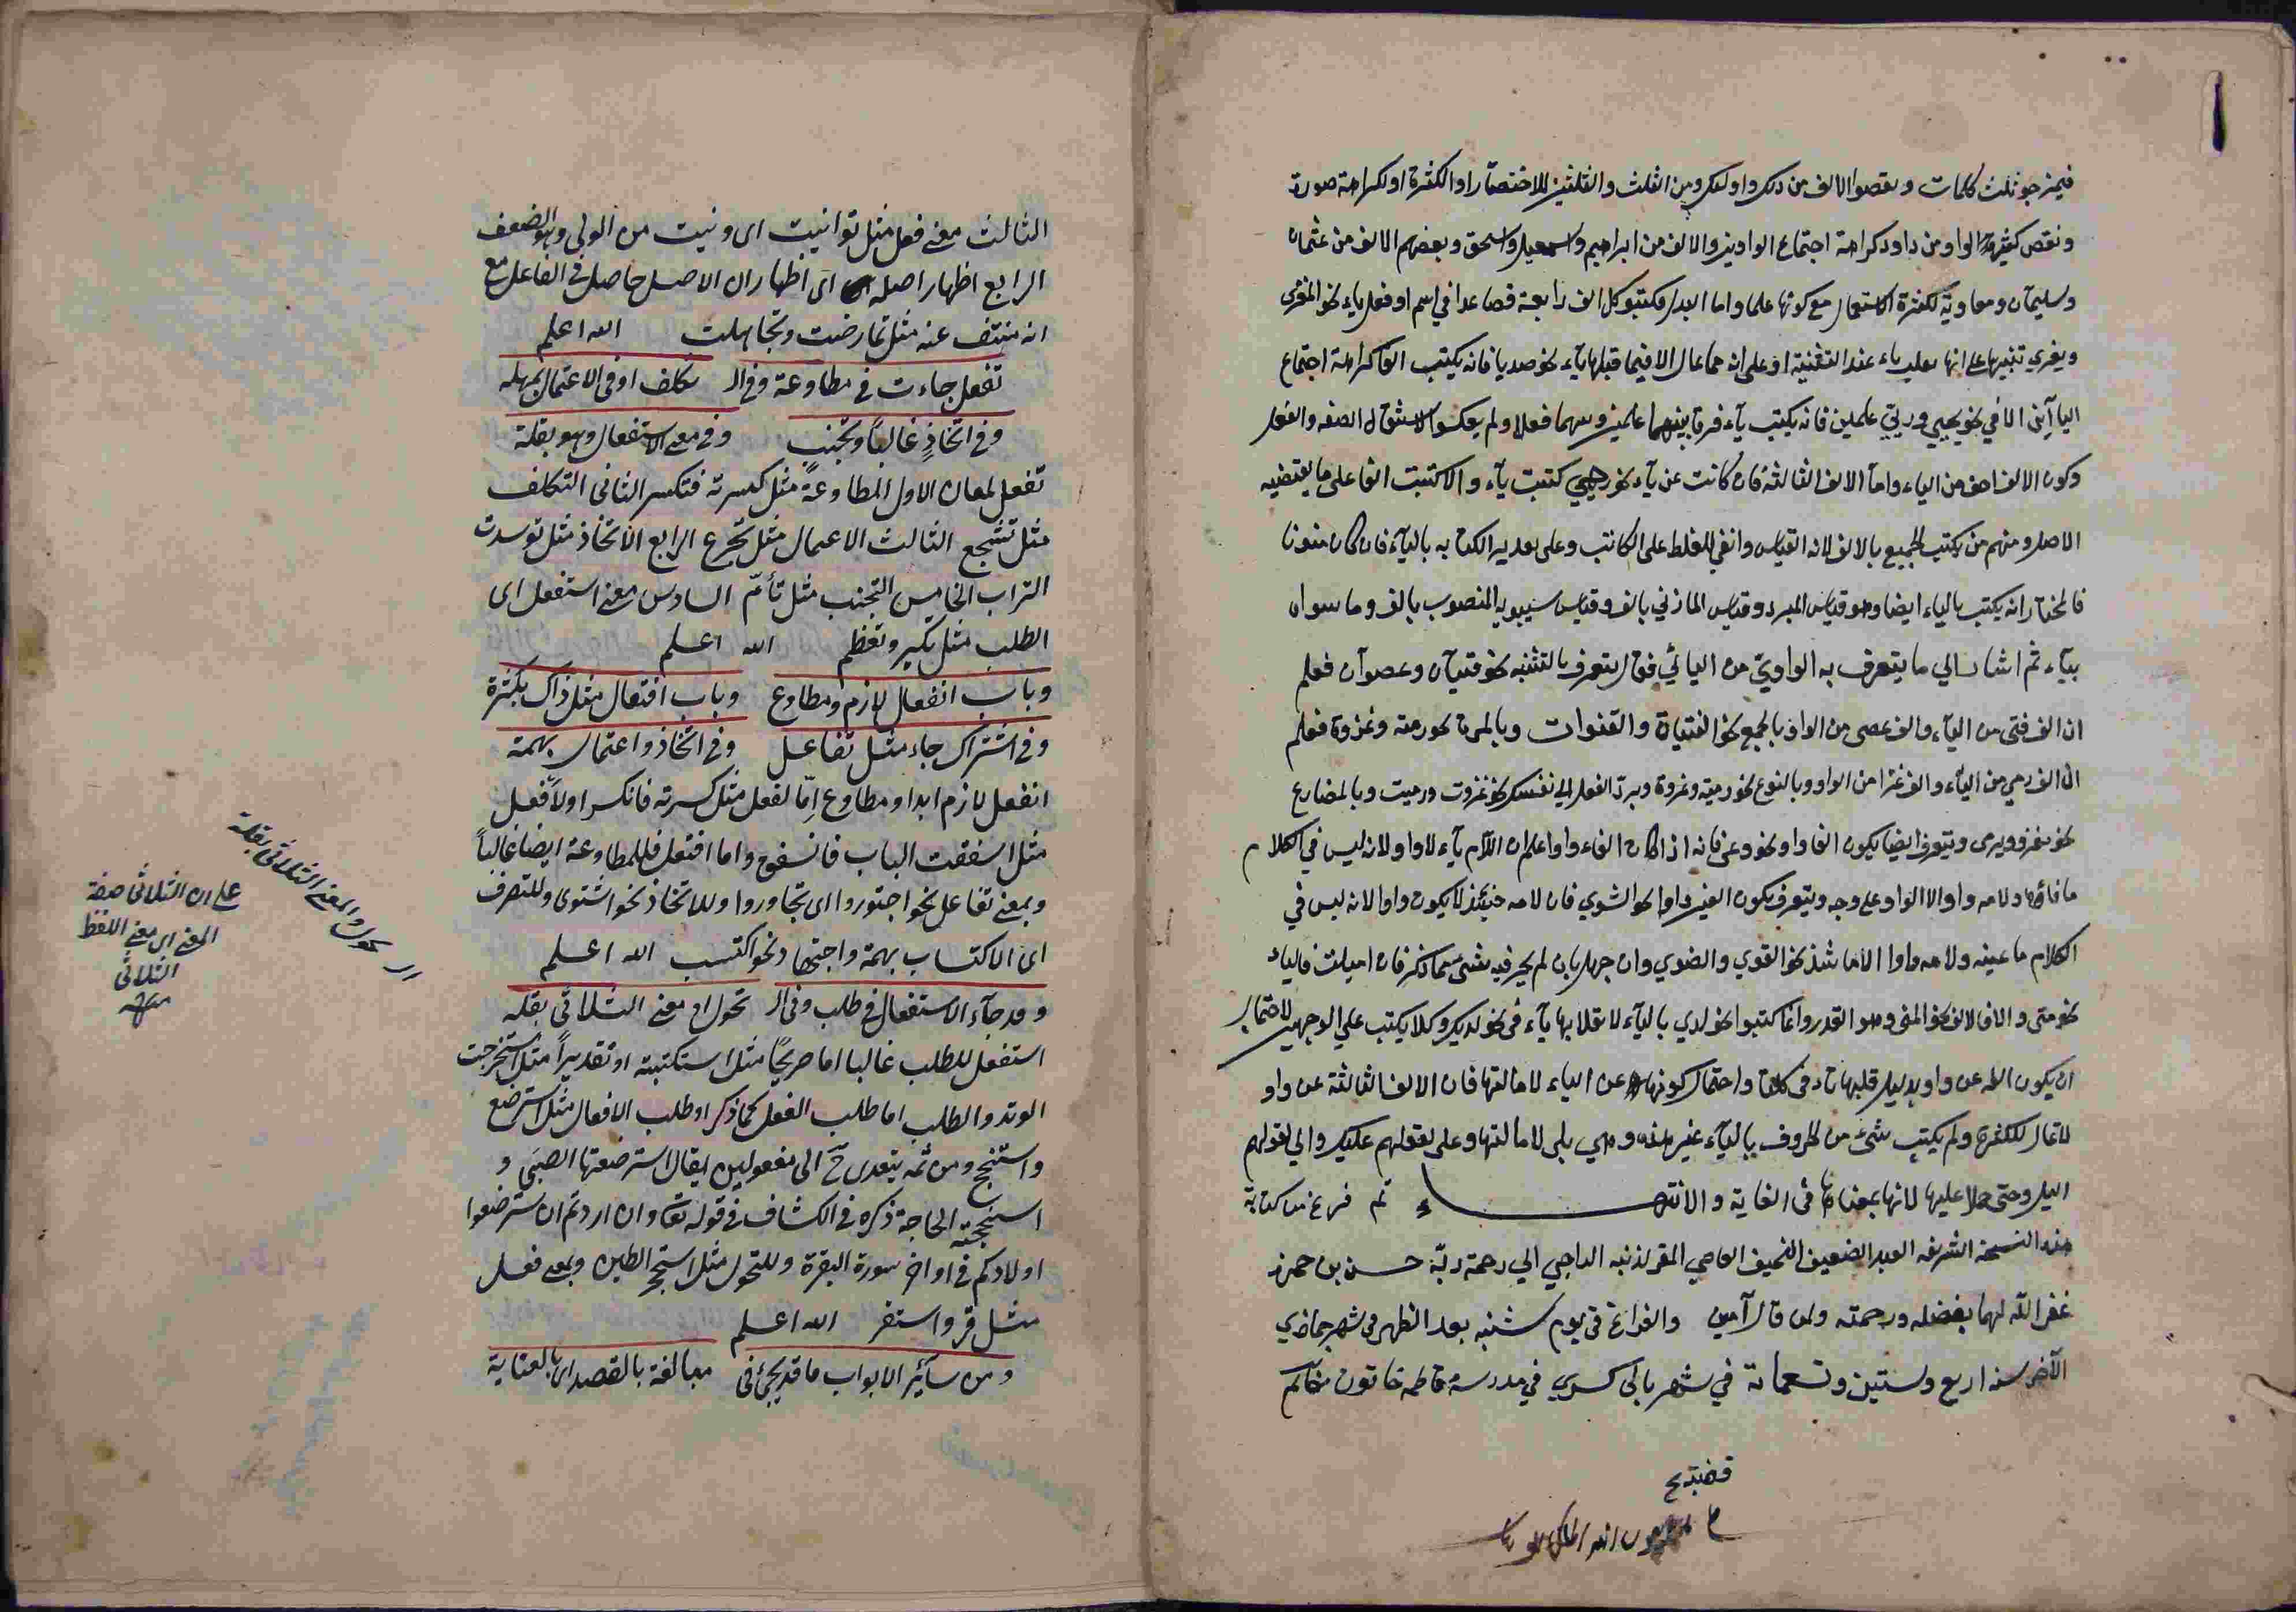 فيمزجو ثلث كلمات ونقصوا الالف من ذلك واولئك ومن الثلث والثلثين للاختصار او الكثرة او لكراهة صورة
ونقص كثير الواو من داود كراهة اجتماع الواوين والالف من ابراهيم واسمعيل واسحق وبعضهم الالف من عثمان
وسليمان ومعاوية لكثرة الاستعمال مع كونها علما واما البدل فكتبو كل الف رابعة فصاعدا في اسم او فعل ياء نحو المغزى
ويغزي تنبيها على انها تقلب ياء عند التثنية او على انه مما يمال الا فيما قبلها ياء نحو صديا فانه يكتب الفا كراهة اجتماع
اليائين الا في نحو يحيي وريّ علمين فانه يكتب ياء فرقا بينهما علمين وبينهما فعلا ولم يعكسوا لاستثقال الصفه والفعل
وكون الالف اخف من الياء واما الالف الثالثه فان كانت عن ياء نحو رحيي كتبت ياء والا كتبت الفا على ما يقتضيه
الاصل ومنهم من يكتب الجميع بالالف لانه القياس وانفي للغلط على الكاتب وعلى تقدير الكتابه بالياء فان كان منونا
فالمختار انه يكتب بالياء ايضا وهو قياس المبرد وقياس المازني بالف وقياس سيبويه المنصوب بالف وما سواه
بياء ثم اشار الي ما يتعرف به الواويّ من اليائي فقال يتعرف بالتثنيه نحو فتيان وعصوان فعلم
ان الف فتى من الياء والف عصى من الواو بالجمع نحو الفتيات والقنوات وبالمرة نحو رمية وغزوة فعلم
ان الف رمي من الياء والف غزا من الواو وبالنوع نحو رمية وغزوة وبردّ الفعل الي نفسك نحو غزوت ورميت وبالمضارع
نحو يغزو ويرمى ويتعرف ايضا بكون الفا واو نحو وعى فانه اذا كان الفاء واوا علم ان اللام ياء لا واو لانه ليس في الكلام
ما فاؤه ولامه واو الا الواو على وجه ويتعرف بكون العين واوا نحو الشوي فان لامه حينئذ لا يكون واوا لانه ليس في
الكلام ما عينه ولامه واوا الا ما شذ نحو القوي والضوي وان جهل بان لم يجر فيه شيء مما ذكر فان اميلت فالياء
نحو متى والا فالالف نحو المنى وهو القدر وانما كتبوا نحو لدي بالياء لانقلابها ياء في نحو لديك وكلا يكتب علي الوجهين لاحتمال
ان يكون الفه عن واو بدليل قلبها تاء في كلتا واحتمال كونها عن الياء لامالتها فان الالف الثالثة عن واو
لا تمال للكثرة ولم يكتب شيء من الحروف بالياء غير هذه وهي بلى لامالتها وعلى لقولهم عليك والي لقولهم
اليك وحتى حملا عليها لانها بمعناها في الغاية والانتهاء تم فرغ من كتابة
هذه النسخة الشريفه العبد الضعيف النحيف العاصي المقر لذنبه الراجي الي رحمة ربّه حسن بن حمزه
غفر الله لهما بفضله ورحمته ولمن قال آمين والفراغ في يوم شنبه بعد الظهر في شهر جماذي
الآخر سنه اربع وستين وتسعمائة في شهر بالى كسري في مدرسة فاطمه خاتون
الثالث معنى فعل مثل توانيت اى ونيت من الونى وهو الضعف
الرابع اظهار اصله اى اظهار ان الاصل حاصل فى الفاعل مع
انه منتف عنه مثل تمارضت وتجاهلت الله اعلم
تفعل جاءت فى مطاوعة وفى الـ تكلف او فى الاعتمال بمهله
وفى اتخاذٍ غالباً وتجنبٍ وفى معنى الاستفعال وهو بقلة
تفعل لمعان الاول المطاوعة مثل كسرته فتكسر الثانى التكلف
مثل تشجع الثالث الاعتمال مثل تجرع الرابع الاتخاذ مثل توسدت
التراب الخامس التجنب مثل تأثم السادس معنى استفعل اى
الطلب مثل تكبر وتعظم الله اعلم
وباب انفعال لازم ومطاوع وباب افتعال مثل ذاك بكثرة
وفى اشتراك جاء مثل تفاعل وفى اتخاذ واعتمال بهمة
انفعل لازم ابدا ومطاوع اِمّا لفعل مثل كسرته فانكسر او لأفعل
مثل اسفقت الباب فانسفق واما افتعل فللمطاوعة ايضا غالباً
وبمعنى تفاعل نحو اجتوروا اى تجاوروا وللاتخاذ نحو اشتوى وللتصرف
اى الاكتساب بهمة واجتهاد نحو اكتسب الله اعلم
وقد جاء الاستفعال فى طلب وفى الـ تحول او معنى الثلاثى بقله
استفعل للطلب غالبا اما صريحًا مثل استكتبته او تقديراً مثل استخرجت
الوتد والطلب اما طلب الفعل كما ذكر او طلب الافعال مثل استرضع
واستنجح ومن ثمه يتعدى ح الى مفعولين يقال استرضعتها الصبى و
استنجحته الحاجة ذكره فى الكشاف فى قوله تعا وان اردتم ان تسترضعوا
اولادكم فى اواخر سورة البقرة وللتحول مثل استحجر الطين وبمعنى فعل
مثل قر واستقر الله اعلم
ومن سائر الابواب ما قد يجئ فى مبالغة بالقصد اى بالعناية
الـ تحول والمعنى الثلاثى بقلة
على ان الثلاثى صفة
المعنى اى معنى اللفظ
الثلاثى